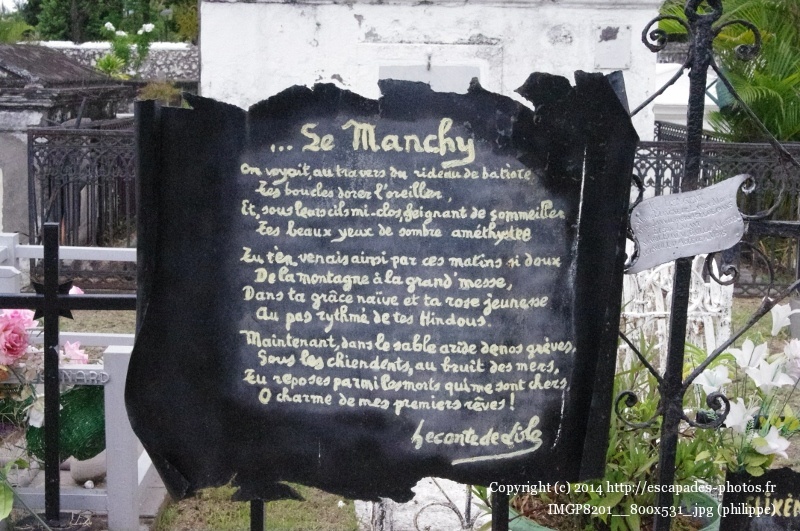 ... Le Manchy
On voyait, au travers du rideau de batiste,
Tes boucles dorer l'oreiller,
Et, sous leurs cils mi-clos, feignant de sommeiller
Tes beaux yeux de sombre améthyste
Tu t'en venais ainsi par ces matins si doux
De la montagne à la grand'messe,
Dans ta grâce naïve et ta rose jeunesse
Au pas rythmé de tes Hindous.
Maintenant, dans le sable aride de nos grèves,
Sous les chiendents, au bruit des mers,
Tu reposes parmi les morts qui me sont chers,
O charme de mes premiers rêves !
Leconte de Lisle
Copyright (c) 2014 http://escapades-photos.fr
IMGP8201__800x531_.jpg (philippe)